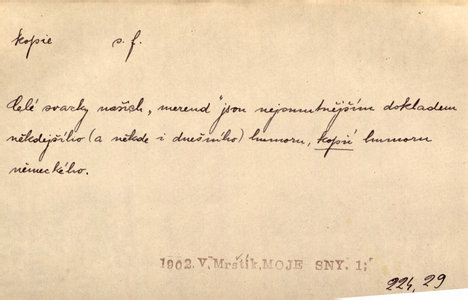 kopie s. f.
Celé svazky našich „merend" jsou nejsmutnějším dokladem
někdejšího (a někde i dnešního) humoru, kopií humoru
německého.
1902. V. Mrštík, MOJE SNY. 1;
224, 29